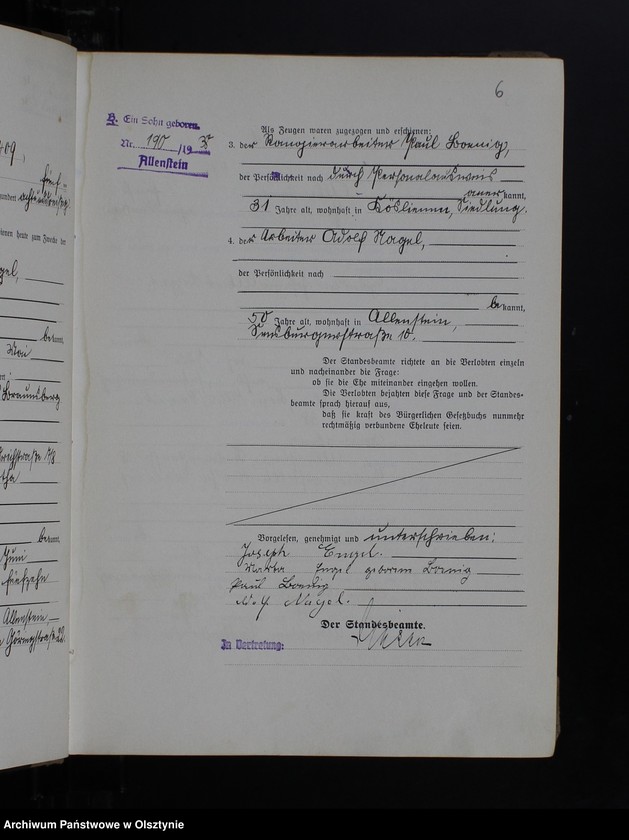 6
B. Ein Sohn geboren.
Nr. 190/19
Allenstein
Als Zeugen waren zugezogen und erschienen:
3. der Rangierarbeiter Paul Boenig,
der Persönlichkeit nach durch Personalausweis
anerkannt,
31 Jahre alt, wohnhaft in Köslienen, Siedlung.
4. der Arbeiter Adolf Nagel,
der Persönlichkeit nach
bekannt,
50 Jahre alt, wohnhaft in Allenstein,
Sensburgerstraße 10.
Der Standesbeamte richtete an die Verlobten einzeln
und nacheinander die Frage:
ob sie die Ehe miteinander eingehen wollen.
Die Verlobten bejahten diese Frage und der Standes-
beamte sprach hierauf aus,
daß sie kraft des Bürgerlichen Gesetzbuchs nunmehr
rechtmäßig verbundene Eheleute seien.
Vorgelesen, genehmigt und unterschrieben:
Joseph Engel.
Martha Engel geborene Boenig
Paul Boenig
Adolf Nagel.
Der Standesbeamte.
In Vertretung:
bekannt,
Mai
Braunsberg
bekannt.
Juni
fünfzehn
Allenstein
Archiwum Państwowe w Olsztynie